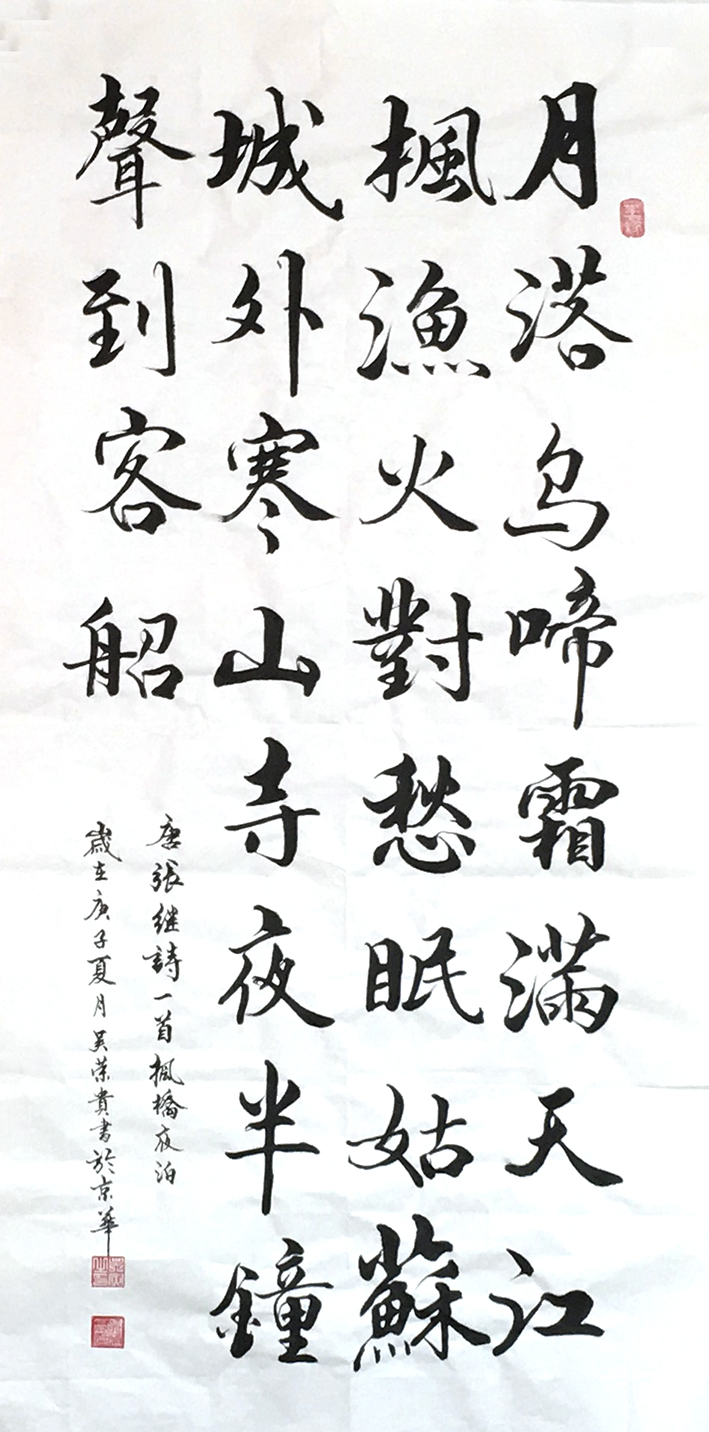 月落烏啼霜滿天江
楓漁火對愁眠姑蘇
城外寒山寺夜半鐘
聲到客船
唐張继詩一首楓橋夜泊
歲在庚子夏月吴荣貴書於京華